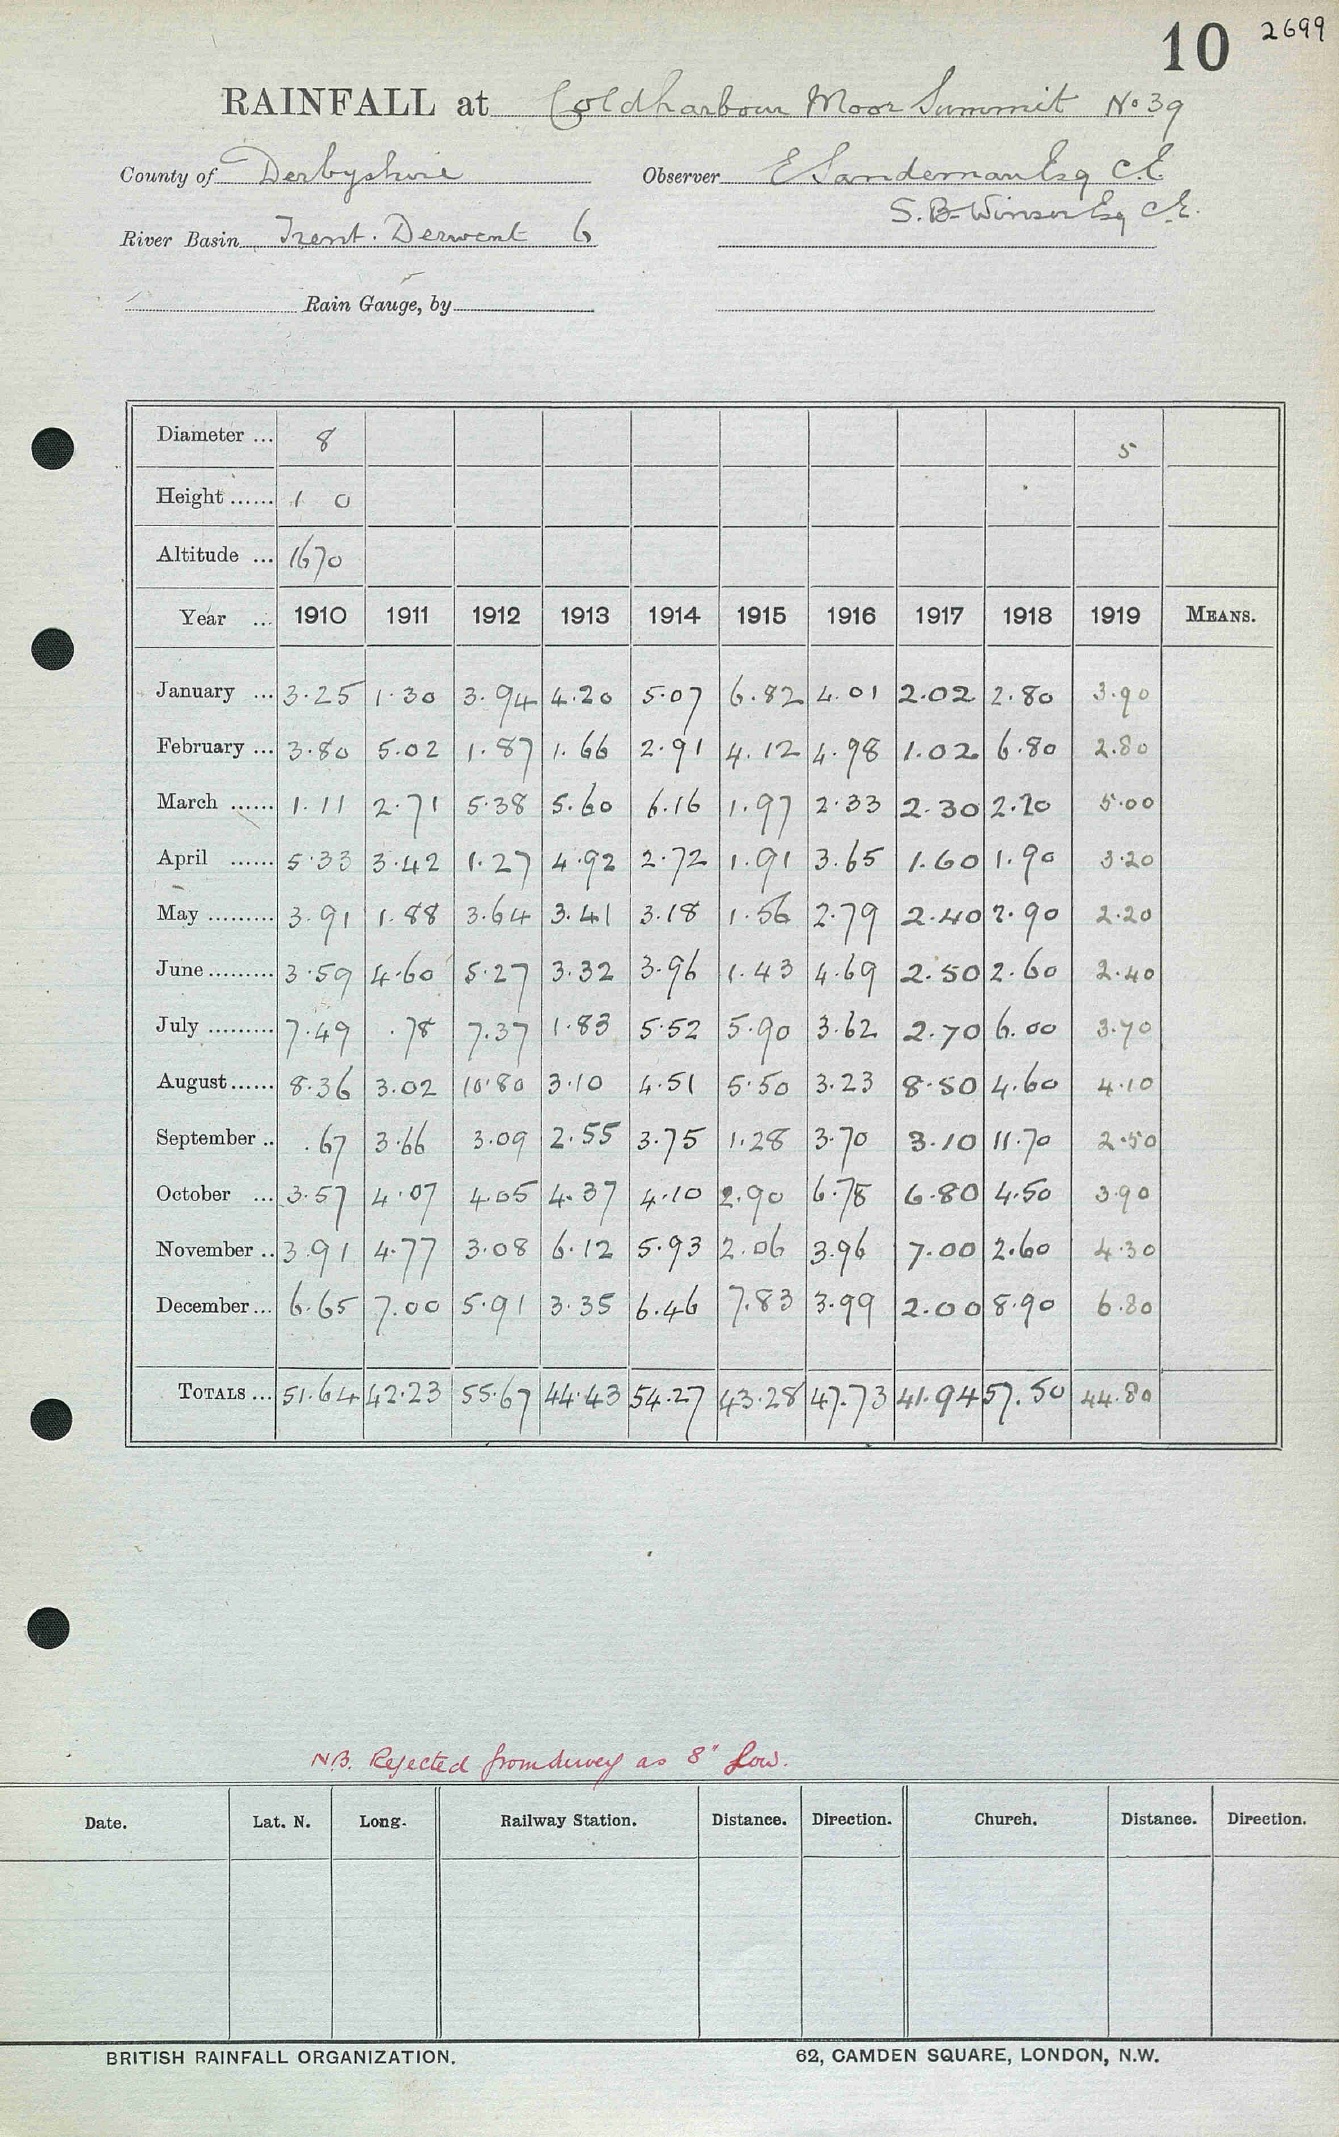 10 2699
RAINFALL at Coldharbour Moor Summit No 39
County of Derbyshire Observer E Sandeman Esq C.E.
S. B. Winser Esq C.E.
River Basin Trent. Derwent 6
Rain Gauge, by
Diameter ... 8 5
Height ...... 1 0
Altitude ... 1670
Year ... 1910 1911 1912 1913 1914 1915 1916 1917 1918 1919 MEANS.
January ... 3.25 1.30 3.94 4.20 5.07 6.82 4.01 2.02 2.80 3.90
February ... 3.80 5.02 1.87 1.66 2.91 4.12 4.98 1.02 6.80 2.80
March ...... 1.11 2.71 5.38 5.60 6.16 1.97 2.33 2.30 2.20 5.00
April ...... 5.33 3.42 1.27 4.92 2.72 1.91 3.65 1.60 1.90 3.20
May ......... 3.91 1.88 3.64 3.41 3.18 1.56 2.79 2.40 2.90 2.20
June ......... 3.59 4.60 5.27 3.32 3.96 1.43 4.69 2.50 2.60 2.40
July ......... 7.49 .78 7.37 1.83 5.52 5.90 3.62 2.70 6.00 3.70
August ...... 8.36 3.02 10.80 3.10 4.51 5.50 3.23 8.50 4.60 4.10
September .. .67 3.66 3.09 2.55 3.75 1.28 3.70 3.10 11.70 2.50
October ... 3.57 4.07 4.05 4.37 4.10 2.90 6.78 6.80 4.50 3.90
November .. 3.91 4.77 3.08 6.12 5.93 2.06 3.96 7.00 2.60 4.30
December ... 6.65 7.00 5.91 3.35 6.46 7.83 3.99 2.00 8.90 6.80
TOTALS ... 51.64 42.23 55.67 44.43 54.27 43.28 47.73 41.94 57.50 44.80
N.B. Rejected from survey as 8" low.
Date. Lat. N. Long. Railway Station. Distance. Direction. Church. Distance. Direction.
BRITISH RAINFALL ORGANIZATION. 62, CAMDEN SQUARE, LONDON, N.W.